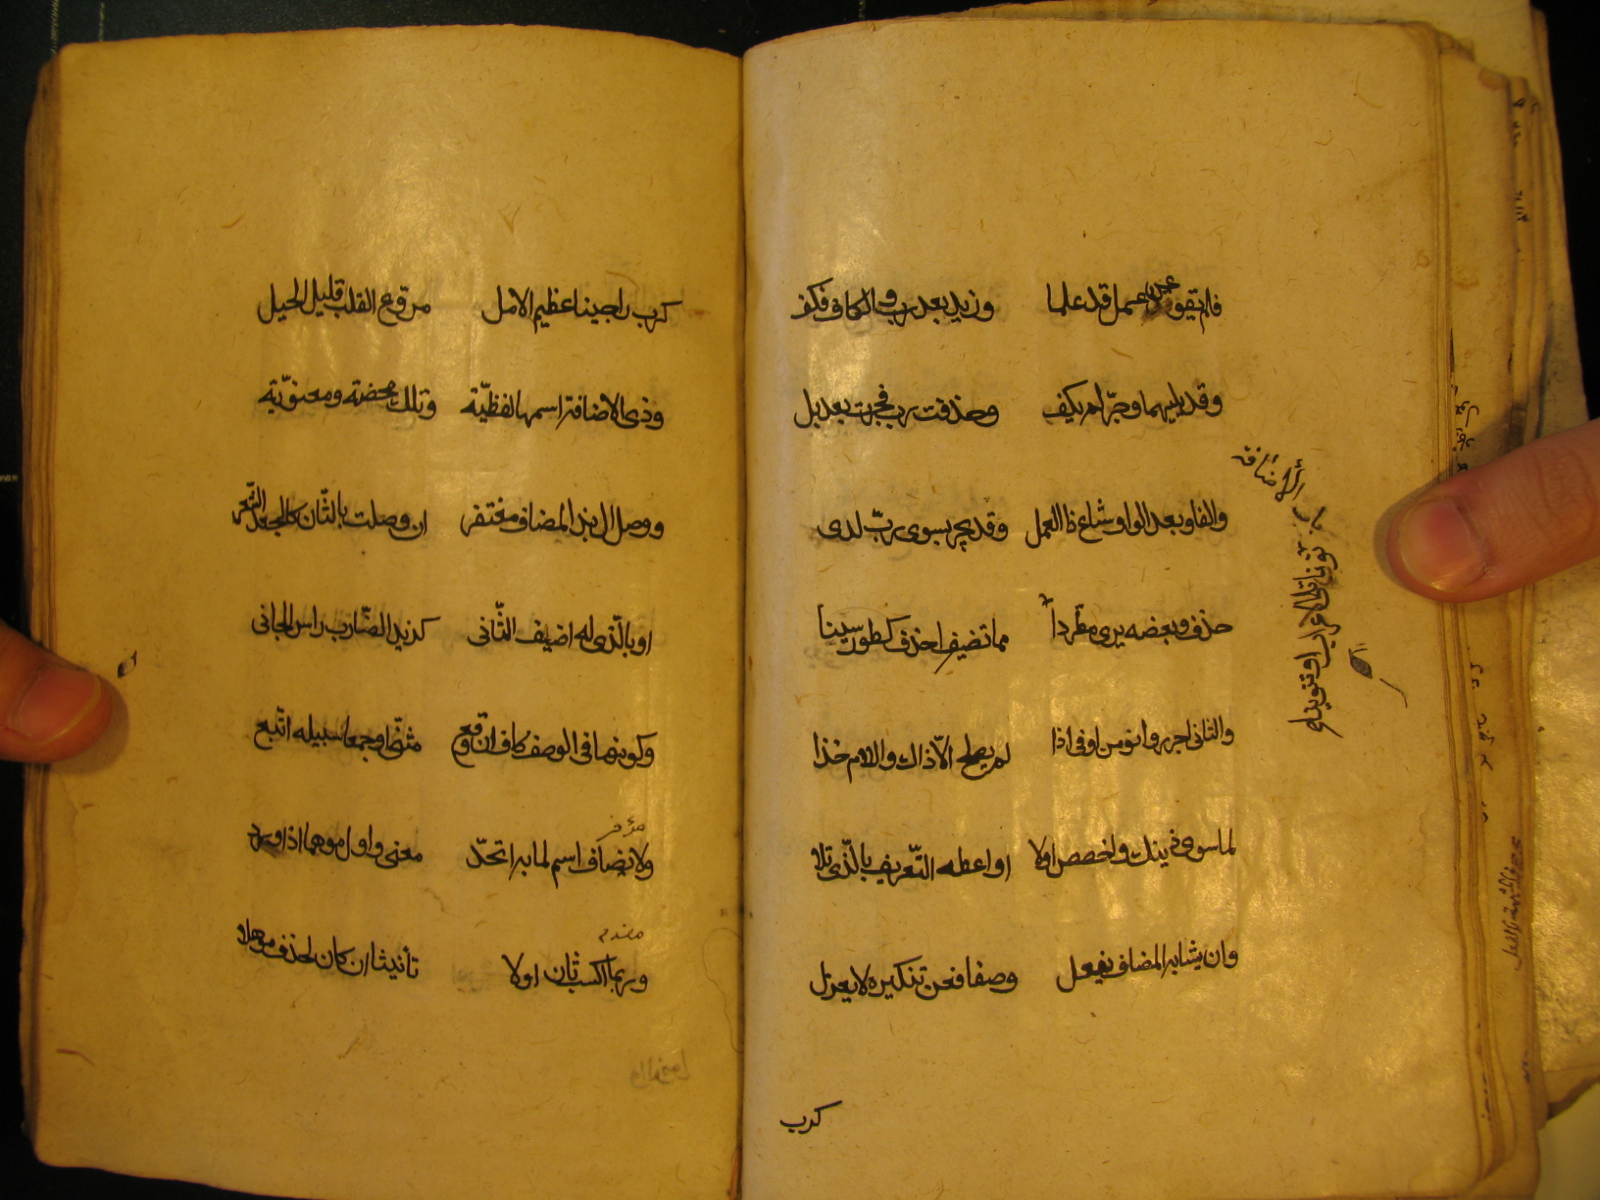 فلم تعق عن عمل قد علما وزيد بعد رب والكاف فكف
وقد يليهما وجرّ لم يكف وحذفت رب فجرت بعد بل
والفا وبعد الواو شاع ذا العمل وقد يجر بسوى ربّ لدى
حذف وبعضه يرى مطّردا
باب الاضافة
نونا تلى الاعراب او تنوينا مما تضيف احذف كطور سينا
والثانى اجرر وانو من او فى اذا لم يصلح الّا ذاك واللام خذا
لما سوى ذينك واخصص اولا او اعطه التّعريف بالّذى تلا
وان يشابه المضاف يفعل وصفا فعن تنكيره لا يعزل
كرب
كرب راجينا عظيم الامل مروع القلب قليل الحيل
وذى الاضافة اسمها لفظيّة وتلك محضة ومعنويّة
ووصل ال بذا المضاف مغتفر ان وصلت بالثّان كالجعد الشّعر
او بالّذى له اضيف الثّانى كزيد الضّارب راس الجانى
وكونها فى الوصف كاف ان وقع مثنّى او جمعا سبيله اتّبع
مؤخر
ولا يضاف اسم لما به اتحدّ معنى واول موهما اذا ورد
مقدم
وربما اكسب ثان اولا تأنيثا ان كان لحذف موهلا